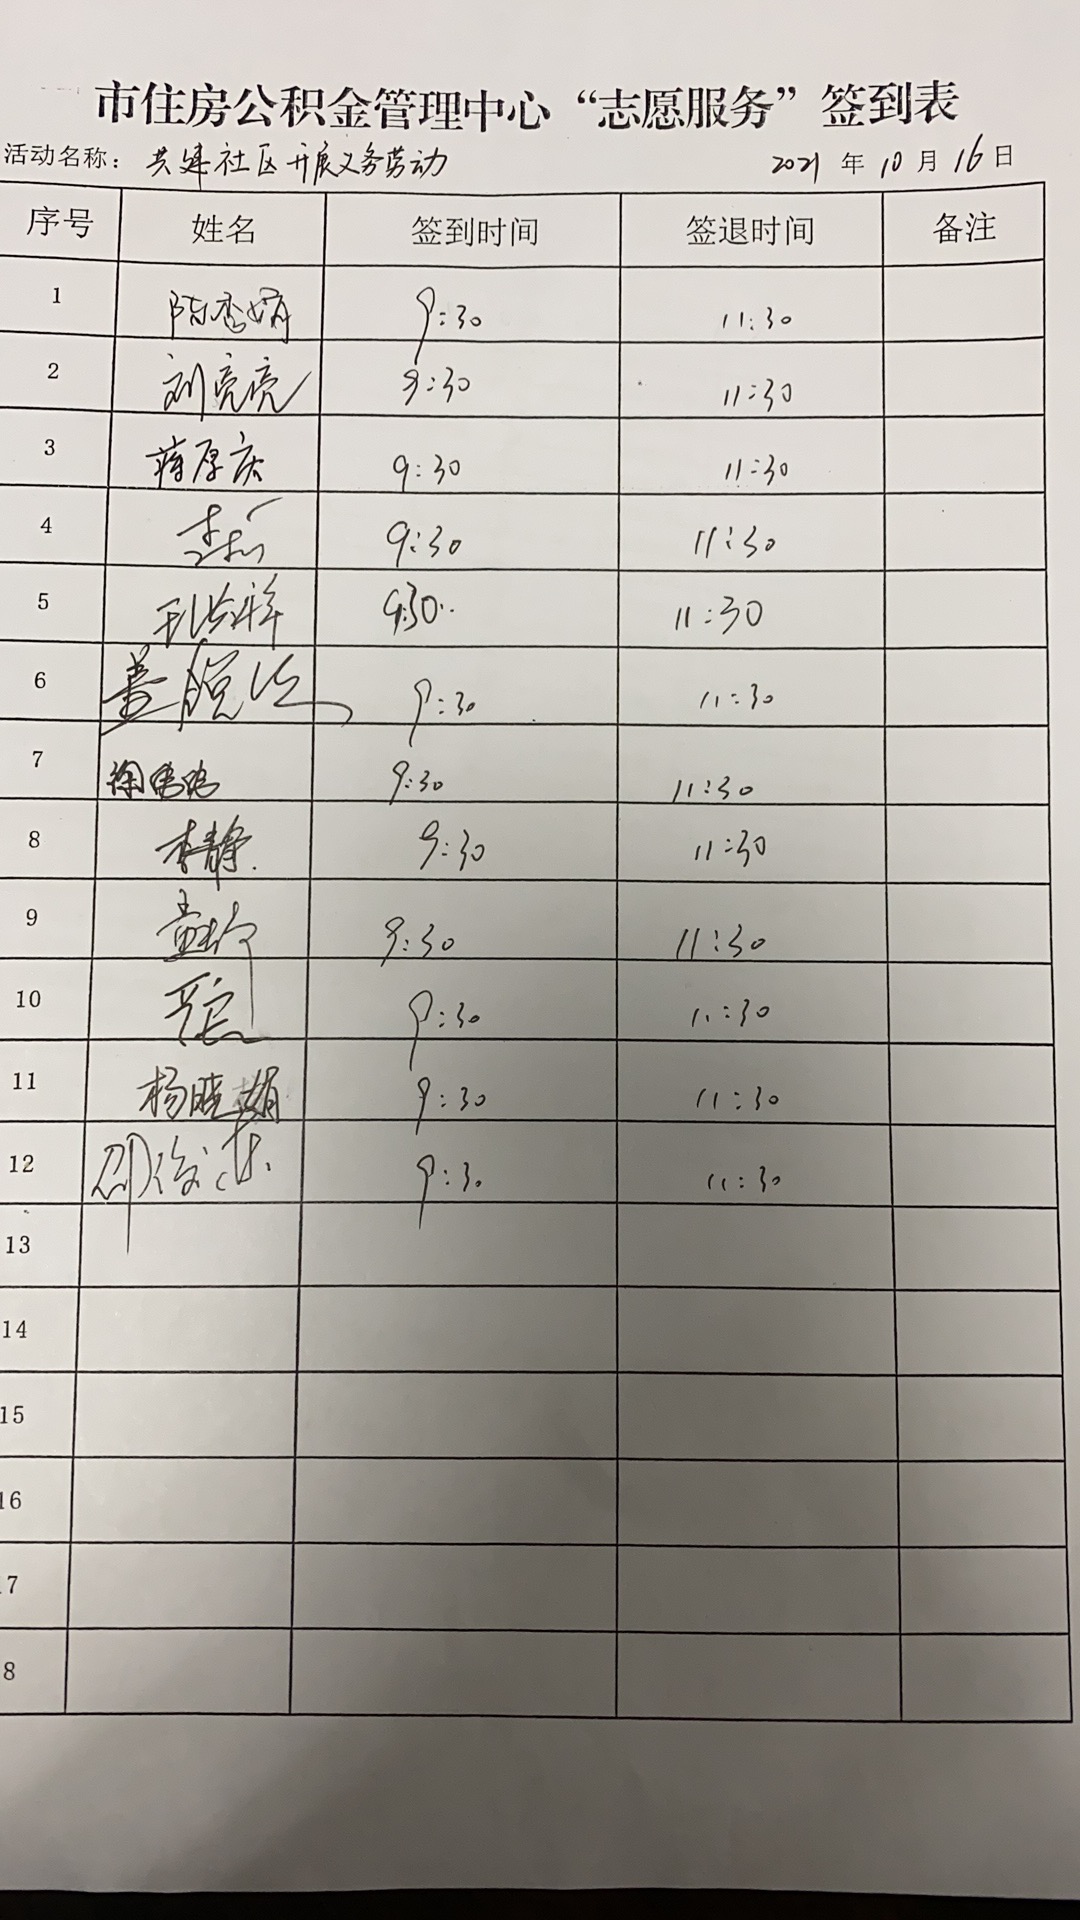 市住房公积金管理中心“志愿服务”签到表
活动名称：共建社区开展义务劳动 2021年10月16日
序号 姓名 签到时间 签退时间 备注
1 陈秀娟 9:30 11:30
2 刘亮亮 9:30 11:30
3 蒋厚庆 9:30 11:30
4 9:30 11:30
5 9:30 11:30
6 9:30 11:30
7 9:30 11:30
8 李静 9:30 11:30
9 9:30 11:30
10 9:30 11:30
11 杨晓娟 9:30 11:30
12 9:30 11:30
13
14
15
16
7
8